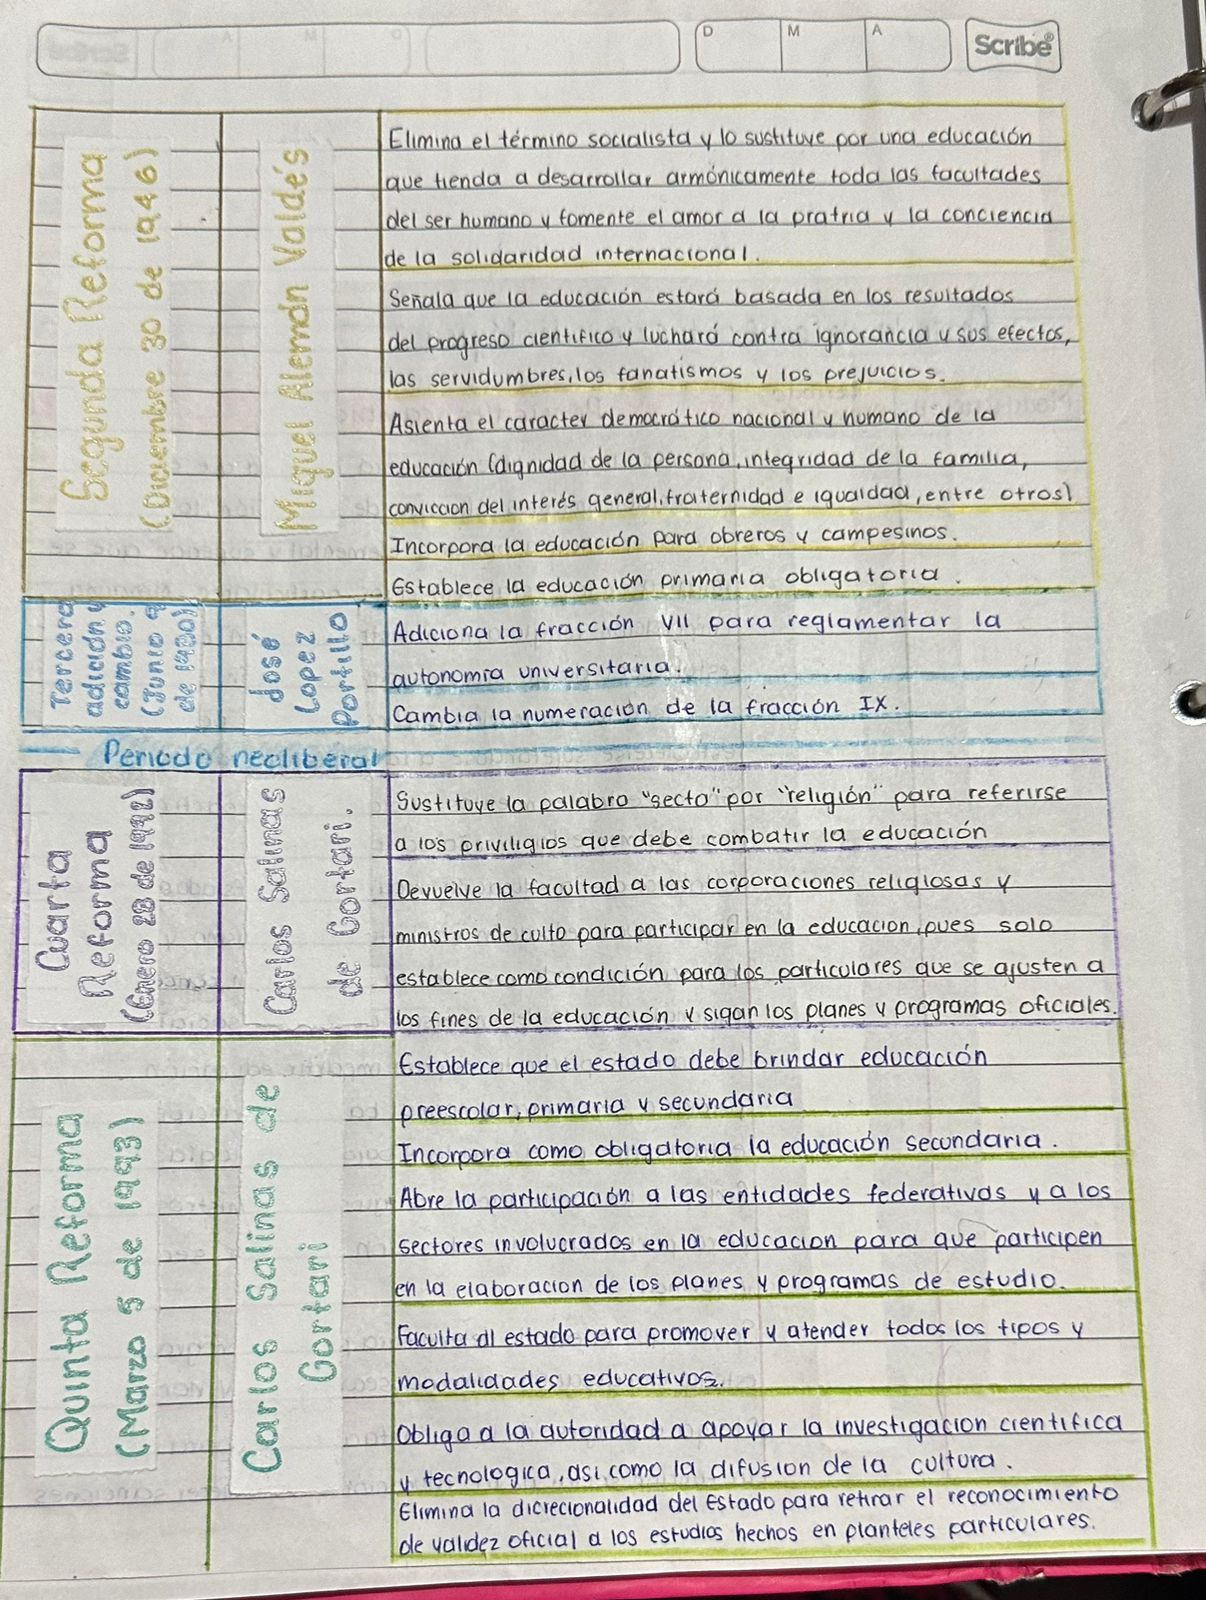 D M A Scribe
Segunda Reforma
(Diciembre 30 de 1946)
Miguel Alemán Valdés
Elimina el término socialista y lo sustituye por una educación
que tienda a desarrollar armónicamente toda las facultades
del ser humano y fomente el amor a la pratria y la conciencia
de la solidaridad internacional.
Señala que la educación estará basada en los resultados
del progreso científico y luchará contra ignorancia y sus efectos,
las servidumbres, los fanatismos y los prejuicios.
Asienta el caracter democrático nacional y humano de la
educación (dignidad de la persona, integridad de la familia,
conviccion del interés general, fraternidad e igualdad, entre otros)
Incorpora la educación para obreros y campesinos.
Establece la educación primaria obligatoria.
Tercera
adición y
cambio.
(Junio 9
de 1980)
José
Lopez
Portillo
Adiciona la fracción VII para reglamentar la
autonomía universitaria.
Cambia la numeración de la fracción IX.
Periodo neoliberal
Cuarta
Reforma
(Enero 28 de 1992)
Carlos Salinas
de Gortari.
Sustituye la palabra "secta" por "religión" para referirse
a los priviligios que debe combatir la educación
Devuelve la facultad a las corporaciones religiosas y
ministros de culto para participar en la educacion, pues solo
establece como condición para los particulares que se ajusten a
los fines de la educación y sigan los planes y programas oficiales.
Quinta Reforma
(Marzo 5 de 1993)
Carlos Salinas de
Gortari
Establece que el estado debe brindar educación
preescolar, primaria y secundaria
Incorpora como obligatoria la educación secundaria.
Abre la participación a las entidades federativas y a los
sectores involucrados en la educacion para que participen
en la elaboracion de los planes y programas de estudio.
Faculta al estado para promover y atender todos los tipos y
modalidades educativos.
Obliga a la autoridad a apoyar la investigacion cientifica
y tecnologica, asi como la difusion de la cultura.
Elimina la dicrecionalidad del Estado para retirar el reconocimiento
de validez oficial a los estudios hechos en planteles particulares.